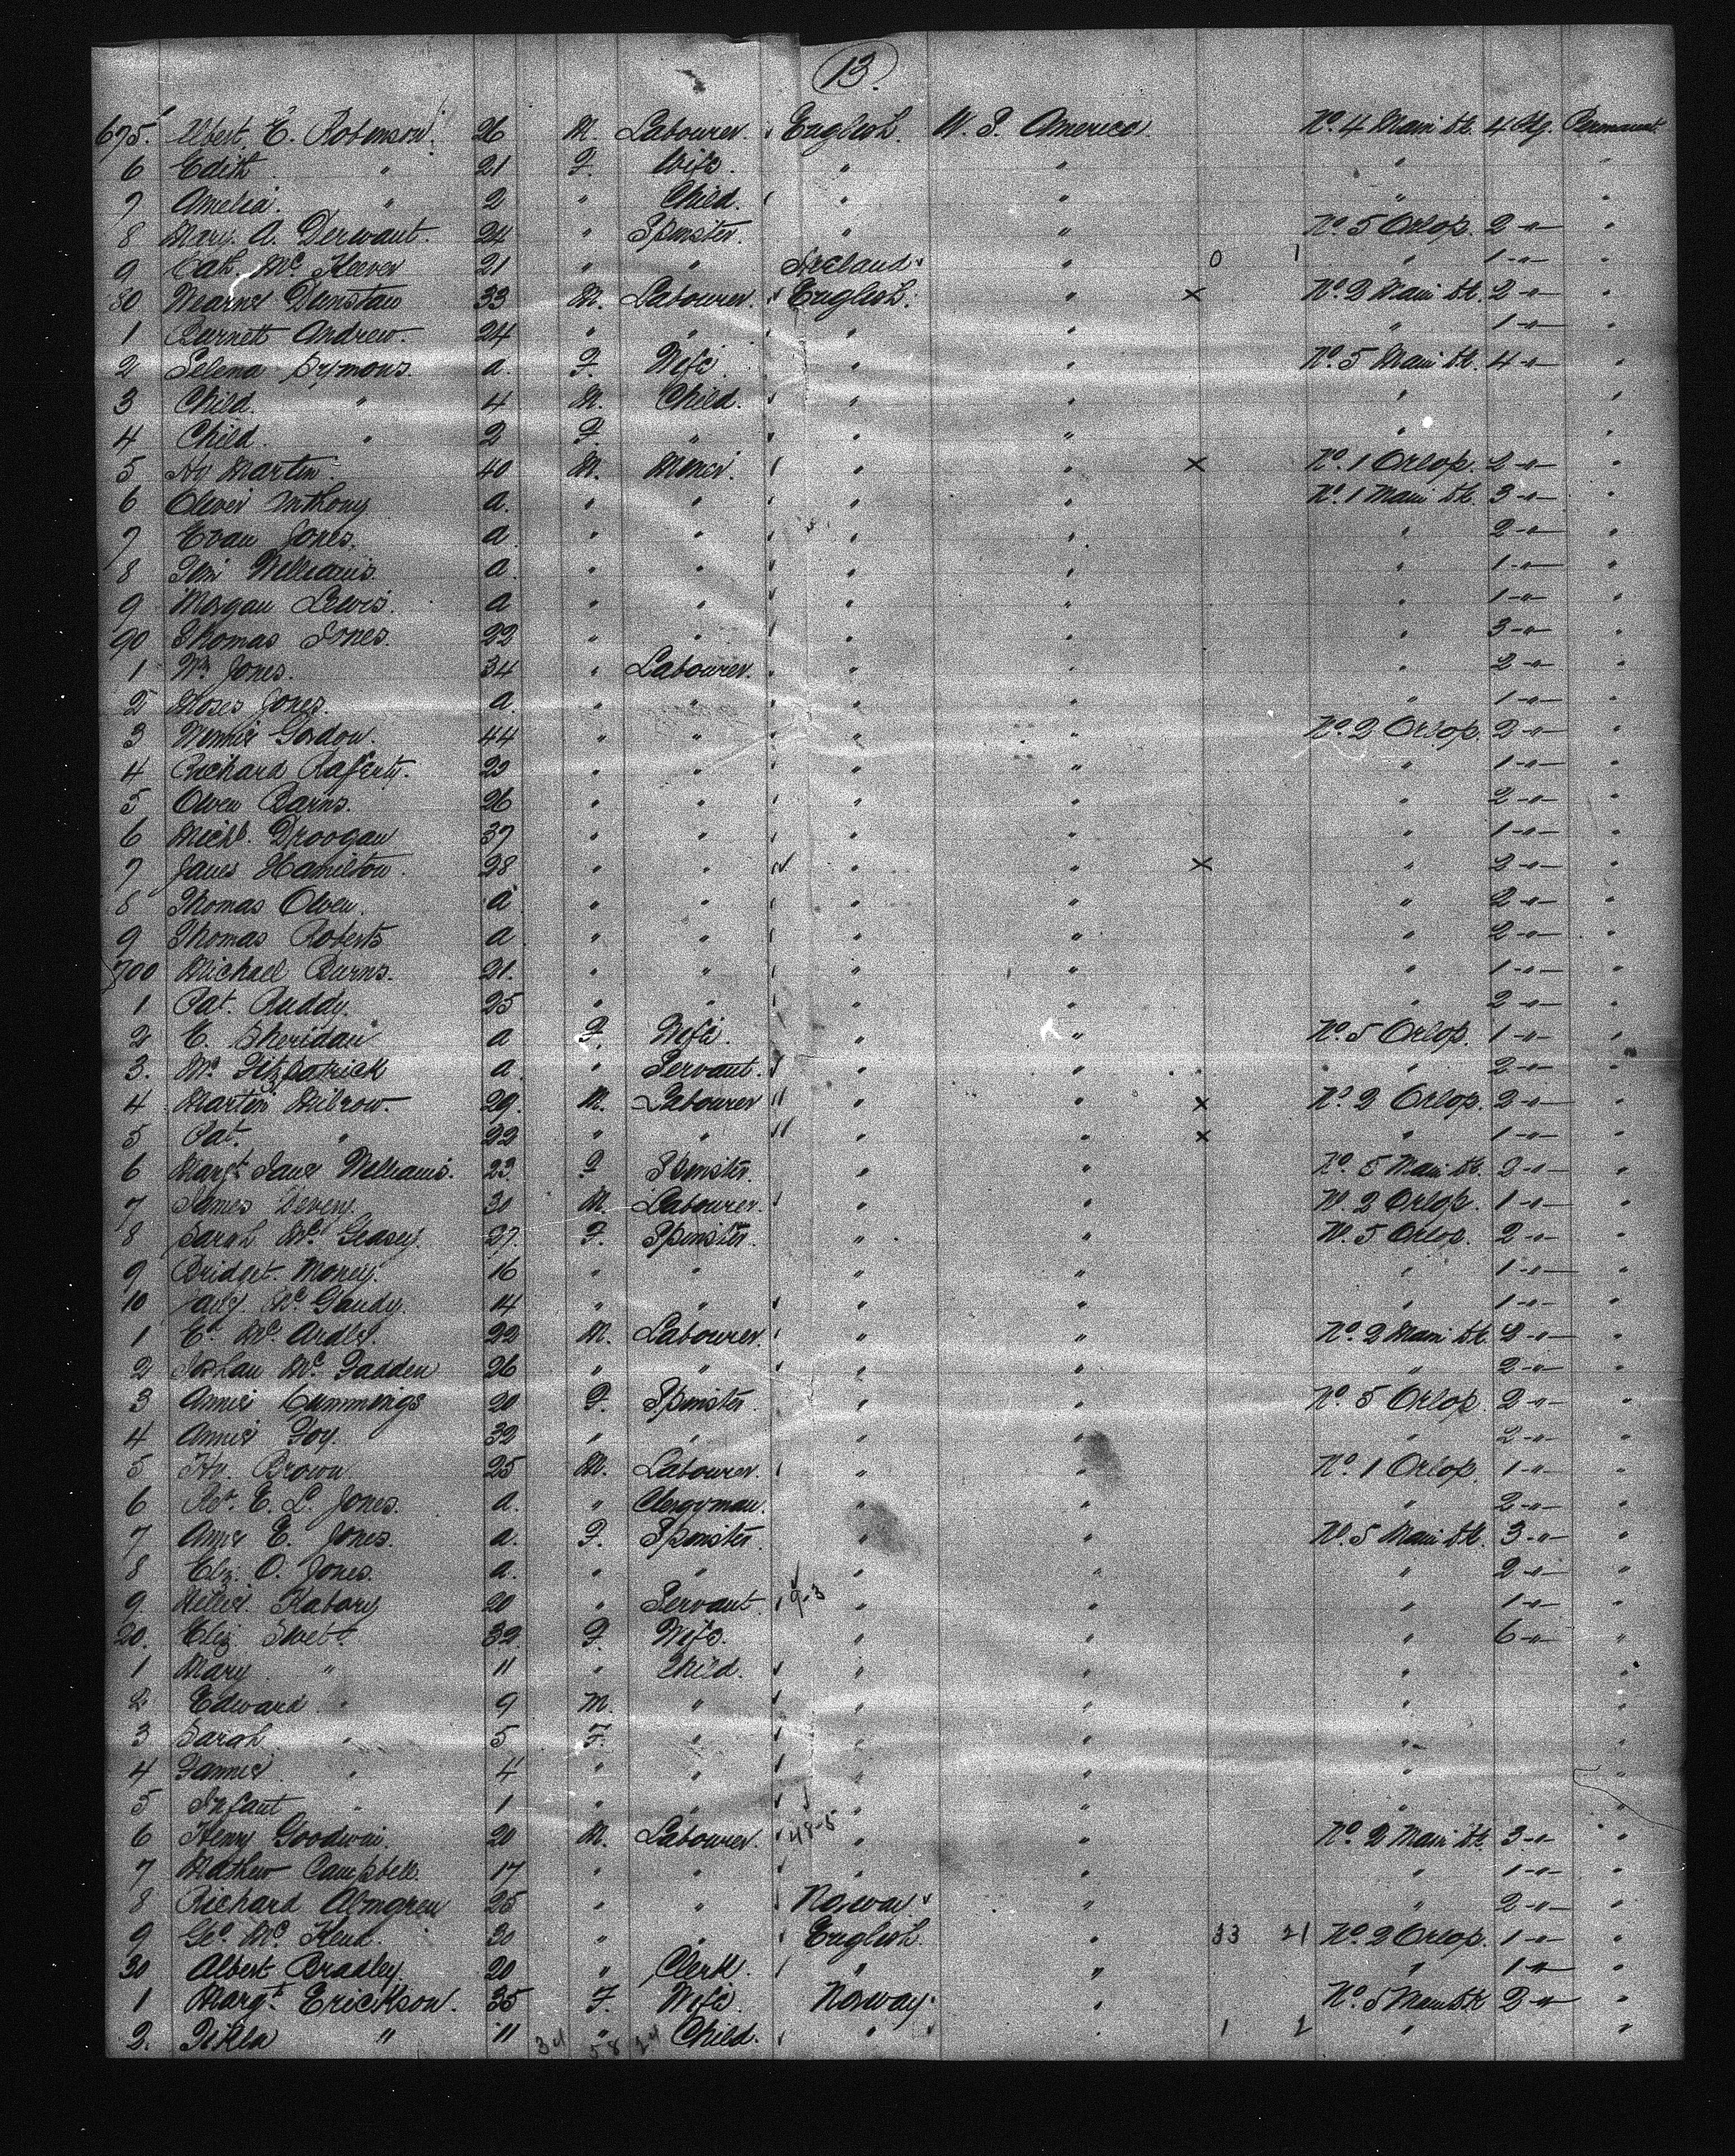 13.
675. Albert E. Robinson. 26 M. Labourer. English. U. S. America No. 4 Main Dk. 4 Pkg. Permanent
6 Edith " 21 F. Wife. " " " "
7 Amelia. " 2 " Child. " " " "
8 Mary. A. Derwaut. 24 " Spinster. " " No. 5 Orlop. 2 -"- "
9 Cath. Mc Keever 21 " " Ireland " 0 1 " 1 -"- "
80 Dunstan 33 M. Labourer. English. " × No. 2 Main Dk. 2 -"- "
1 Barnett Andrew. 24 " " " " " 1 -"- "
2 Selena Symons. a. F. Wife. " " No. 5 Main Dk. 4 -"- "
3 Child. " 4 M. Child. " " " "
4 Child. " 2 F. " " " " "
5 Hy Martin. 40 M. Miner. " " × No. 1 Orlop. 2 -"- "
6 Oliver Anthony a. " " " " No. 1 Main Dk. 3 -"- "
7 Evan Jones. a. " " " " " 2 -"- "
8 Williams. a. " " " " " 1 -"- "
9 Morgan Lewis. a " " " " " 1 -"- "
90 Thomas Jones. 22 " " " " " 3 -"- "
1 Wm Jones. 34 " Labourer. " " " 2 -"- "
2 Moses Jones. a. " " " " " 1 -"- "
3 Gordon. 44 " " " " No. 2 Orlop. 2 -"- "
4 Richard Raferty. 20 " " " " " 1 -"- "
5 Owen Barns. 26 " " " " " 2 -"- "
6 Michl. Droogan 37 " " " " " 1 -"- "
7 James Hamilton. 28 " " " " × " 2 -"- "
8 Thomas Owen. a " " " " " 2 -"- "
9 Thomas Roberts a " " " " " 2 -"- "
700 Michael Burns. 21. " " " " " 1 -"- "
1 Pat. Ruddy. 25 " " " " " 2 -"- "
2 E. Sheridan a F. Wife. " " No. 5 Orlop. 1 -"- "
3. Fitzpatrick a. " Servant. " " " 2 -"- "
4 Martin Milrow. 29. M. Labourer " " × No. 2 Orlop. 2 -"- "
5 Pat. " 22 " " " " × " 1 -"- "
6 Margt Jane Williams. 23. F Spinster. " " No. 5 Main Dk. 2 -"- "
7 James Devery. 30 M. Labourer. " " No. 2 Orlop. 1 -"- "
8 Sarah Mc Geasey. 27. F. Spinster. " " No. 5 Orlop. 2 -"- "
9 Bridget Money. 16 " " " " " 1 -"- "
10 Mc Gaudy. 14 " " " " " 1 -"- "
1 Ed. Mc Ardle. 22 M. Labourer. " " No. 2 Main Dk. 2 -"- "
2 Mc Fadden 26 " " " " " 2 -"- "
3 Annie Cummings 20 F. Spinster. " " No. 5 Orlop. 2 -"- "
4 Annie Foy. 32 " " " " " 2 -"- "
5 Hy. Brown. 25 M. Labourer. " " No. 1 Orlop. 1 -"- "
6 E. L. Jones. a. " Clergyman. " " " 2 -"- "
7 Anne E. Jones. a. F. Spinster. " " No. 5 Main Dk. 3 -"- "
8 Eliz. O. Jones. a. " " " " " 2 -"- "
9. Habory 20 " Servant. 9-3 " " " 1 -"- "
20. Eliz. Swett. 32. F. Wife. " " " 6 -"- "
1 Mary " 11 " Child. " " " "
2 Edward " 9 M. " " " " "
3 Sarah " 5 F. " " " " "
4 Fannie " 4 " " " " " "
5 Infant " 1 " " " " " "
6 Henry Goodwin. 20 M. Labourer. 48-5 " " No. 2 Main Dk. 3 -"- "
7 Mathew Campbell. 17 " " " " " 1 -"- "
8 Richard Almgren 25 " " Norway " " 2 -"- "
9 Geo. Mc Kend. 30 " " English. " 33 21 No. 2 Orlop. 1 -"- "
30 Albert Bradley. 20 " Clerk. " " " 1 -"- "
1 Margt. Erickson. 35 F. Wife. Norway. " No. 5 Main Dk 2 -"- "
2. " 11 " Child. " " 1 1 " "
34 58 24